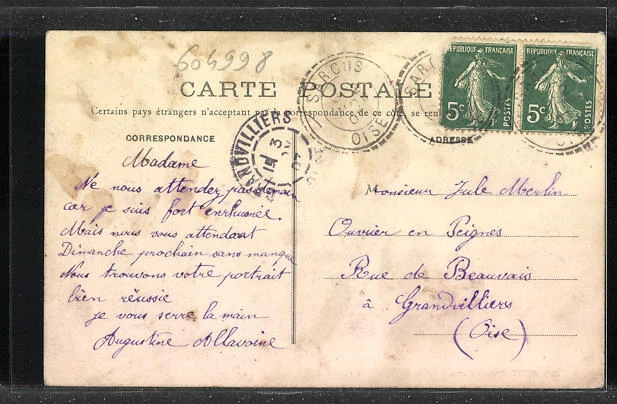 604998
CARTE POSTALE
Certains pays étrangers n'acceptant pas de correspondance de ce côté, se ren
CORRESPONDANCE
ADRESSE
SARCUS
OISE
GRANDVILLIERS
RÉPUBLIQUE FRANÇAISE
5c POSTES
RÉPUBLIQUE FRANÇAISE
5c POSTES
Madame
Ne nous attendez pas demain
car je suis fort enrhumée.
Mais nous vous attendont
Dimanche prochain sans manque
Nous trouvons votre portrait
bien réussie
je vous serre la main
Augustine Allavoine
Monsieur Jule Merlin
Ouvrier en Peignes
Rue de Beauvais
à Grandvilliers
(Oise)